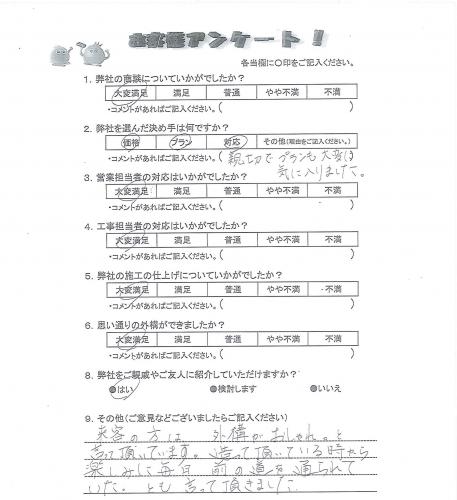 お客様アンケート！
各当欄に〇印をご記入ください。
1. 弊社の商談についていかがでしたか？
大変満足 満足 普通 やや不満 不満
・コメントがあればご記入ください。(
2. 弊社を選んだ決め手は何ですか？
価格 プラン 対応 その他(理由をご記入ください。)
・コメントがあればご記入ください。( 親切でプランも大変
気に入りました。
3. 営業担当者の対応はいかがでしたか？
大変満足 満足 普通 やや不満 不満
・コメントがあればご記入ください。(
4. 工事担当者の対応はいかがでしたか？
大変満足 満足 普通 やや不満 不満
・コメントがあればご記入ください。(
5. 弊社の施工の仕上げについていかがでしたか？
大変満足 満足 普通 やや不満 不満
・コメントがあればご記入ください。(
6. 思い通りの外構ができましたか？
大変満足 満足 普通 やや不満 不満
・コメントがあればご記入ください。( )
8. 弊社をご親戚やご友人に紹介していただけますか？
●はい ●検討します ●いいえ
9. その他(ご意見などございましたらご記入ください)
来客の方は 外構がおしゃれ。と
言って頂いています。造って頂いている時から
楽しみに毎日 前の道を通られて
いた。とも言って頂きました。